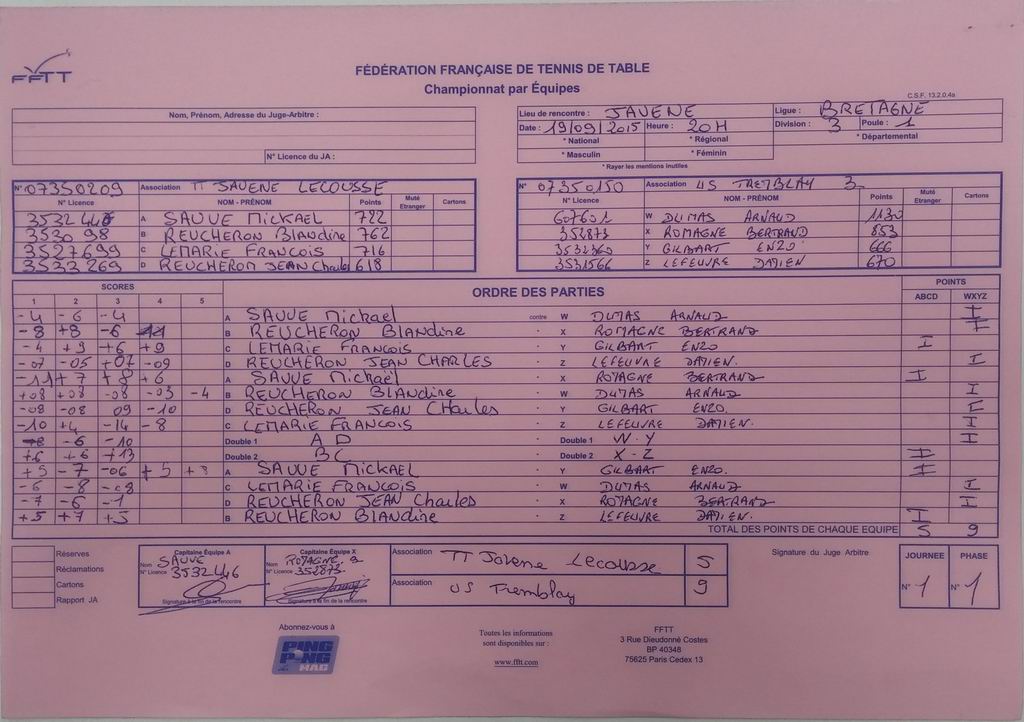 FFTT
FÉDÉRATION FRANÇAISE DE TENNIS DE TABLE
Championnat par Équipes
C.S.F. 13.2.0.4a
Nom, Prénom, Adresse du Juge-Arbitre :
N° Licence du JA :
Lieu de rencontre : JAVENE Ligue : BRETAGNE
Date : 19/09/2015 Heure : 20H Division : 3 Poule : 1
* National * Régional * Départemental
* Masculin * Féminin
* Rayer les mentions inutiles
N° 07350209 Association TT JAVENE LECOUSSE
N° Licence NOM - PRÉNOM Points Muté Etranger Cartons
3532446 A SAUVE MICKAEL 722
3530 98 B REUCHERON Blandine 762
3527699 C LEMARIE FRANCOIS 716
3533269 D REUCHERON JEAN Charles 618
N° 07350150 Association US TREMBLAY 3
N° Licence NOM - PRÉNOM Points Muté Etranger Cartons
607601 W DUMAS ARNAUD 1130
352873 X ROMAGNE BERTRAND 853
3532360 Y GILBART ENZO 666
3531566 Z LEFEUVRE DAMIEN 670
SCORES ORDRE DES PARTIES POINTS
1 2 3 4 5 ABCD WXYZ
-4 -6 -4 A SAUVE Mickael contre W DUMAS ARNAUD I
-8 +8 -6 B REUCHERON Blandine X ROMAGNE BERTRAND I
-4 +9 +6 +9 C LEMARIE François Y GILBART ENZO I
-07 -05 +07 -09 D REUCHERON JEAN CHARLES Z LEFEUVRE DAMIEN. I
-11 +7 +8 +6 A SAUVE Mickaël X ROMAGNE BERTRAND I
+08 +08 -08 -03 -4 B REUCHERON BLANDine W DUMAS ARNAUD I
-08 -08 09 -10 D REUCHERON JEAN Charles Y GILBART ENZO. I
-10 +4 -14 -8 C LEMARIE FRANCOIS Z LEFEUVRE DAMIEN. I
-8 -6 -10 Double 1 A D Double 1 W - Y I
+6 +6 +13 Double 2 B C Double 2 X - Z I
+5 -7 -06 +5 +3 A SAUVE MICKAEL Y GILBART ENZO. I
-6 -8 -08 C LEMARIE FRANCOIS W DUMAS ARNAUD I
-7 -6 -1 D REUCHERON JEAN Charles X ROMAGNE BERTRAND I
+5 +7 +5 B REUCHERON Blandine Z LEFEUVRE DAMIEN. I
TOTAL DES POINTS DE CHAQUE EQUIPE 5 9
Réserves
Réclamations
Cartons
Rapport JA
Capitaine Équipe A
Nom SAUVE
N° Licence 3532446
Signature à la fin de la rencontre
Capitaine Équipe X
Nom ROMAGNE B
N° Licence 352873
Signature à la fin de la rencontre
Association TT Javene Lecousse 5
Association US Tremblay 9
Signature du Juge Arbitre
JOURNEE PHASE
N° 1 N° 1
Abonnez-vous à
PING PONG MAG
Toutes les informations
sont disponibles sur :
www.fftt.com
FFTT
3 Rue Dieudonné Costes
BP 40348
75625 Paris Cedex 13